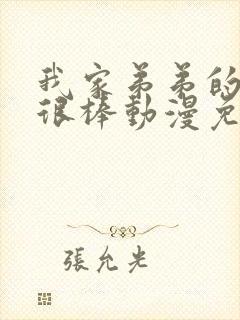 我家弟弟的
很棒動漫免
張允光